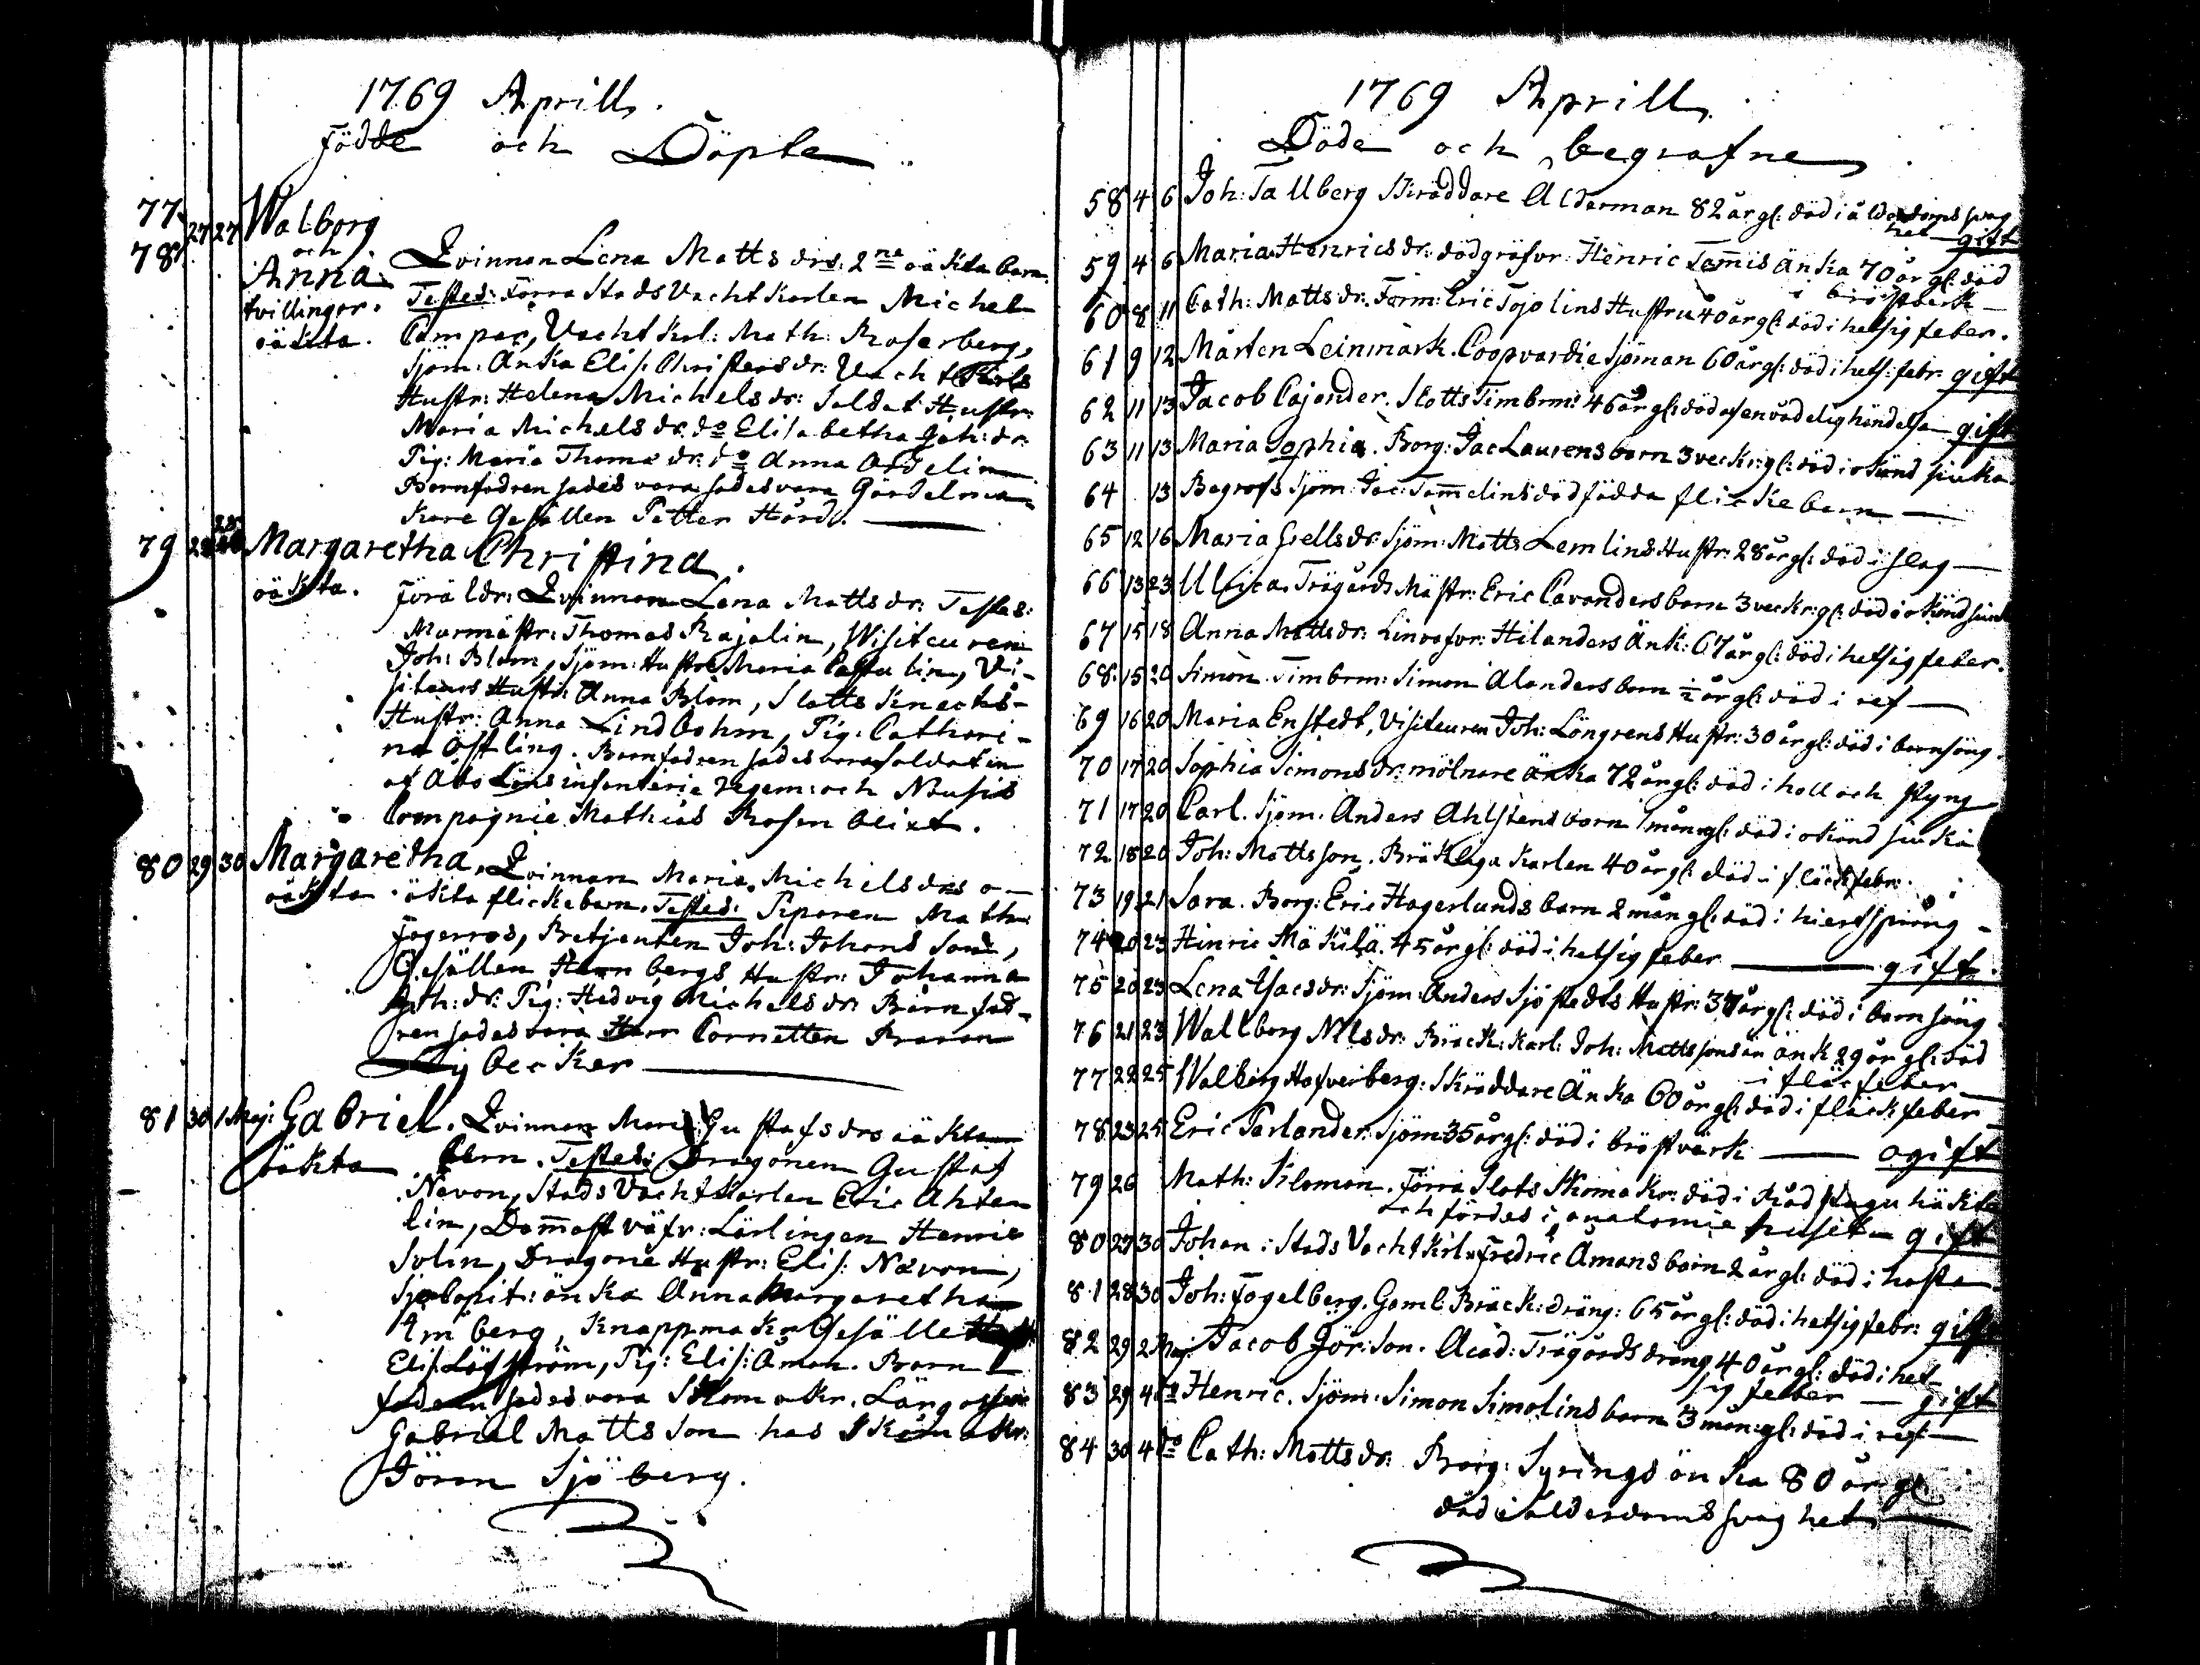 1769 Aprill.
Födde och Döpte
77
78 27 27 Walborg
och
Anna
tvillingar.
oäkta.
Qvinnan Lena Matts drs: 2ne oäkta barn.
Testes: Förra Stads Vacht Karlen Michel
Vacht Karl: Math: Roserberg,
Sjöm: Änka Elis: Christersdr: Vacht
Hustr: Helena Michelsdr: Soldat Hustr:
Maria Michels dr: do Elisabetha Joh: dr:
Pig: Maria Thoms dr: do Anna
Barnfadren sades vara sades vara Gördelma-
kare Gesällen Petter Hård.
79 28 Margaretha Christina.
oäkta. Föräldr: Qvinnan Lena Matts dr: Testes:
Murmästr: Thomas Rajalin, Visiteuren
Joh: Blom, Sjöm: Hustr: Maria Vi-
siteurs Hustr: Anna Blom, Slotts Knechts-
Hustr: Anna Lindbohm, Pig: Cathari-
na Östling. Barnfadren sades vara soldaten
af Åbo Läns infanterie regem: och Nousis
Compagnie Mathias Rosenblixt.
80 29 30 Margaretha, Qvinnan Maria Michelsdrs o-
oäkta äkta flickebarn. Testes: Math:
Betjenten Joh: Johans Son,
Gesällen bergs Hustr: Johanna
Joh: dr: Pig: Hedvig Michelsdr: Barnfad-
ren sades vara Herr Cornetten Baron
Lybecker
81 30 1 Maj: Gabriel. Qvinnan Maria Gustafs drs oäkta
oäkta barn. Testes: Dragonen Gustaf
Nævon, Stads Vacht Karlen Eric Ahten
lin, Damast väfv: Lärlingen Henric
Solin, Dragone Hustr: Elis: Nævon,
Sjöcapit: änka Anna Margaretha
Amberg, Knappmakr Gesälle
Elis: Löfström, Pig: Elis: Åman. Barn
fadern sades vara Skomakr: Lärgossen
Gabriel Matts Son hos Skomakr:
Jöran Sjöberg.
1769 Aprill
Döde och begrafne
58 4 6 Joh: Tallberg Skräddare Ålderman 82 år gl: död i ålderdoms svag
het gift
59 4 6 Maria Henrics dr: dödgräfvr: Henric Tammis änka 70 år gl: död
i bröstverk
60 8 11 Cath: Matts dr: Farm: Eric Tojolins Hustru 40 år gl: död i hetsig feber.
61 9 12 Mårten Leinmark. Coopvardie Sjöman 60 år gl: död i hets: febr: gift
62 11 13 Jacob Cajander. Slotts Timbrm: 46 år gl: död af en vådelig händelse gift
63 11 13 Maria Sophia. Borg: Jac Laurens barn 3 veckr: gl: död i okänd siuka
64 13 Begrofs Sjöm: Jac: Tammelins dödfödda flicke barn
65 12 16 Maria Grellsdr: Sjöm: Matts Lemlins Hustr: 28 år gl: död i slag
66 13 23 Ulrica. Trägårds Mästr: Eric Cavanders barn 3 veckr: gl: död i okänd siuk
67 15 18 Anna Matts dr: Linväfvr: Hilanders Änk: 67 år gl: död i hetsig feber.
68 15 20 Simon. Timbrm: Simon Alanders barn ½ år gl: död i ref
69 16 20 Maria Enstedt, Visiteuren Joh: Löngrens Hustr: 30 år gl: död i barnsäng
70 17 20 Sophia Simons dr: mölnare änka 72 år gl: död i håll och styng
71 17 20 Carl. Sjöm: Anders Ahlstens barn 1 mån: gl: död i okänd siuka
72 18 20 Joh: Matts son. Bräklaga Karlen 40 år gl: död i fläckfebr:
73 19 21 Sara. Borg: Eric Hagerlunds barn 2 mån gl: död i hiertsprång
74 20 23 Hinric Mäkilä. 45 år gl: död i hetsig feber gift.
75 20 23 Lena Isacsdr: Sjöm: Anders Sjöstedts Hustr: 37 år gl: död i barnsäng
76 21 23 Wallborg Nilsdr: Bräck: Karl: Joh: Mattssons änk 29 år gl: död
i fläcfeber
77 22 25 Walborg Hafverberg: Skräddare Änka 60 år gl: död i fläckfeber
78 23 25 Eric Parlander. Sjöm 35 år gl: död i bröstvärk ogift
79 26 Math: Kloman. Förra Slots Skomakr: död i Rådstugu häkte
och fördes i anatomie huset gift
80 27 30 Johan: Stads Vacht Karl: Fredric Åmans barn 2 år gl: död i hosta
81 28 30 Joh: Fogelberg. Gaml: Bräck: dräng: 65 år gl: död i hetsig febr: gift
82 29 2 Maj: Jacob Jör: Son. Acad: Trägårds dräng 40 år gl: död i het-
sig feber gift
83 29 4 do Henric. Sjöm: Simon Simolins barn 3 mån: gl: död i ref
84 30 4 do Cath: Matts dr: Borg: Syrings änka 80 år gl:
död i ålderdoms svaghet